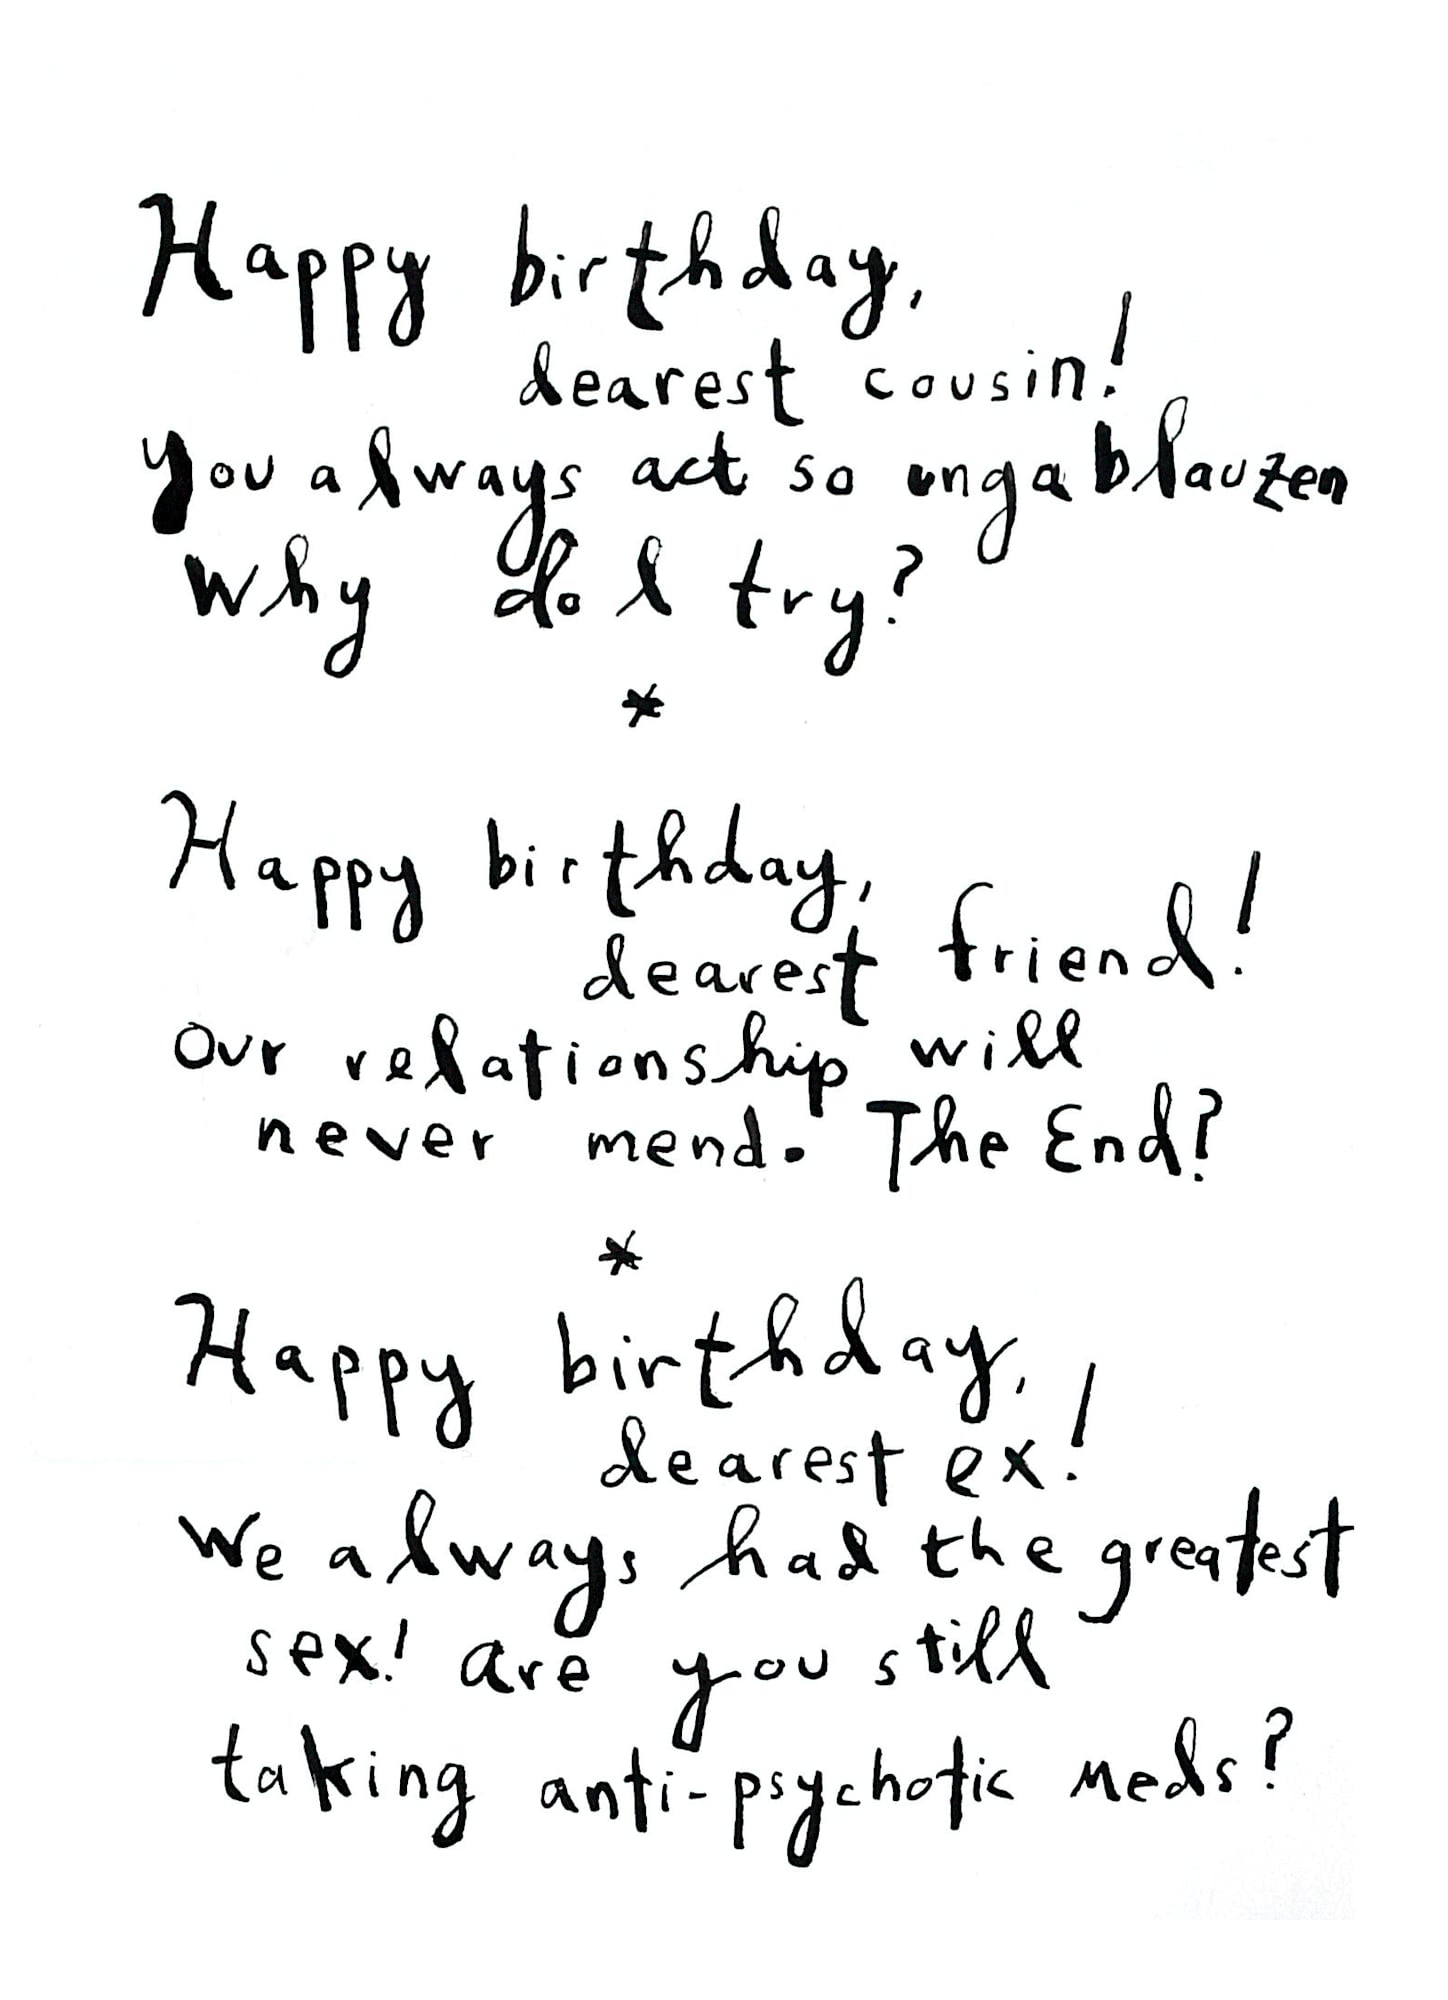 Happy birthday,
dearest cousin!
you always act so ungablauzen
why do I try?
*
Happy birthday,
dearest friend!
our relationship will
never mend. The End?
*
Happy birthday,
dearest ex!
we always had the greatest
sex! are you still
taking anti-psychotic meds?